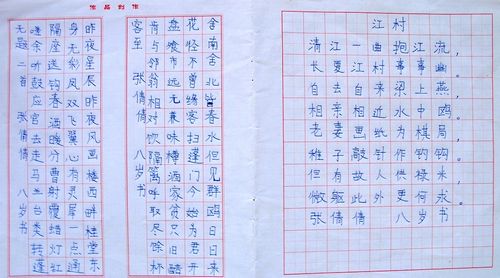 作品创作
舍南舍北皆春水但见群鸥日日来
花径不曾缘客扫蓬门今始为君开
盘飧市远无兼味樽酒家贫只旧醅
肯与邻翁相对饮隔篱呼取尽余杯
客至 张倩倩 八岁书
昨夜星辰昨夜风画楼西畔桂堂东
身无彩凤双飞翼心有灵犀一点通
隔座送钩春酒暖分曹射覆蜡灯红
嗟余听鼓应官去走马兰台类转蓬
无题二首 张倩倩 八岁书
江村
清江一曲抱江流，
长夏江村事事幽。
自去自来梁上燕，
相亲相近水中鸥。
老妻画纸为棋局，
稚子敲针作钓钩。
但有故人供禄米，
微躯此外更何求。
张倩倩 八岁书